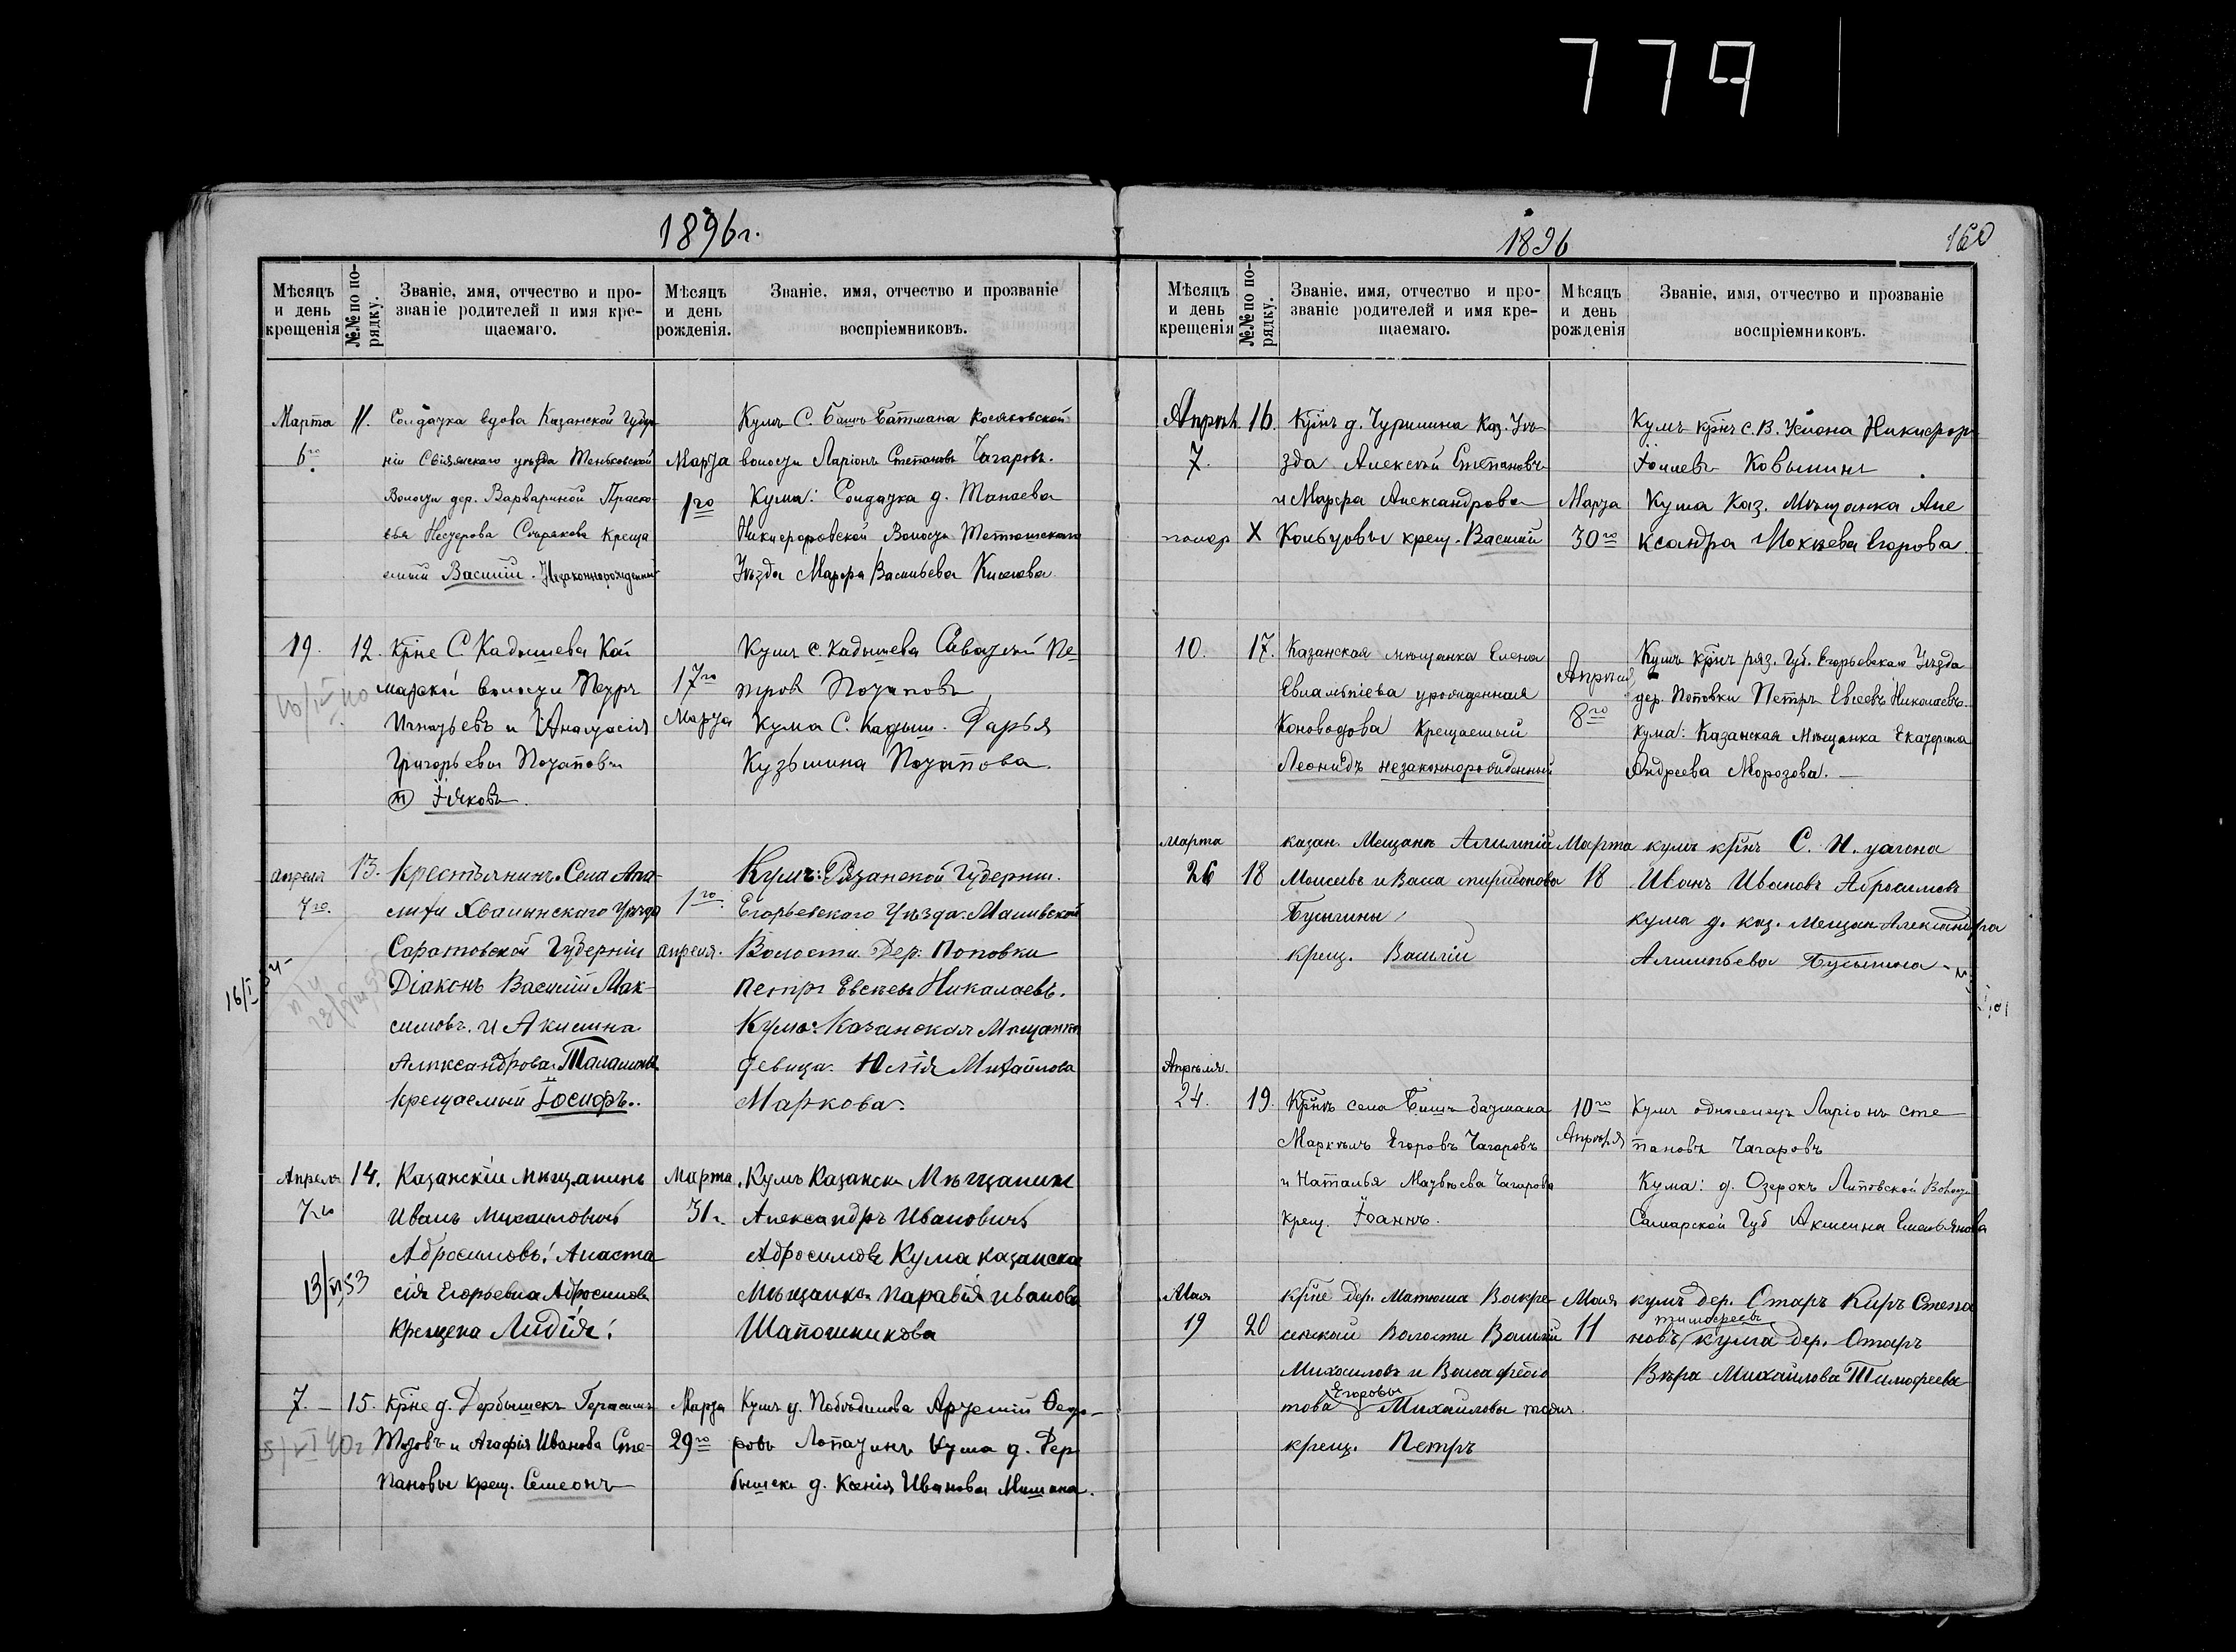 779
1896г.
Мѣсяцъ и день крещенія
№№ по порядку.
Званіе, имя, отчество и прозваніе родителей и имя крещаемаго.
Мѣсяцъ и день рожденія.
Званіе, имя, отчество и прозваніе воспріемниковъ.
Марта 6го
11.
Солдатка вдова Казанской Губер
ніи Свіяжскаго уѣзда Теньковской
Волости дер. Варвариной Праско
вья Нестерова Крещa
емый Василій. Незаконнорожденный
Марта
1го
Кумъ С. Бишъ Батмана
волости Ларіонъ Степановъ Чагаровъ.
Кума: Солдатка д. Танаева
Никифоровской Волости Тетюшскаго
Уѣзда Марфа Васильева Киселева
19.
12.
Крне С. Кадышева Кай
марской волости Петръ
Игнатьевъ и Анастасія
Григорьевы Потаповы
Іяковъ.
17го
Марта
Кумъ с. Кадышева Савватій Пе
тровъ Потаповъ
Кума С. Кадыш. Дарья
Кузьмина Потапова.
апреля
7го.
13.
Крестьянинъ Села Апа
лихи Хвалынскаго Уѣзда
Саратовской Губерніи
Діаконъ Василій Мак
симовъ. и Акилина
Александрова
Крещаемый Іосифъ.
1го.
апреля.
Кумъ: Рязанской Губерніи.
Егорьевскаго Уѣзда. Маливской
Волости. Дер: Поповки
Петръ Евсѣевъ Николаевъ.
Кума: Казанская Мѣщанка
девица. Юлія Михайлова
Маркова.
Апреля
7го
13/VI 53
14.
Казанскій мѣщанинъ
Иванъ Михаиловичъ
Абросимовъ! Анаста
сія Егорьевна Абросимова
Крещена Лидія!
Марта
31г.
Кумъ Казански Мѣщанинъ
Александръ Ивановичъ
Абросимовъ Кума казанска
Мѣщанка Паравія иванова
Шапошникова
7.
15.
Крне д. Дербышекъ Герасимъ
и Агафія Иванова Сте
пановы крещ. Семеонъ
Марта
29го
Кумъ д. Победилова Артемій Федо
ровъ Лопатинъ Кума д. Дер
бышекъ д. Ксенія Иванова Мишина.
1896
160
Мѣсяцъ и день крещенія
№№ по порядку.
Званіе, имя, отчество и прозваніе родителей и имя крещаемаго.
Мѣсяцъ и день рожденія
Званіе, имя, отчество и прозваніе воспріемниковъ.
Апрѣл.
7.
помер
16.
X
Крнъ д. Чурилина Каз. Уѣ
зда Алексѣй Степановъ
и Марфа Александрова
Кольцовы крещ. Василій
Марта
30го
Кумъ крнъ с. В. Услона Никифоръ
Кума Каз. Мѣщанка Але
ксандра Мокѣева Егорова.
10.
17.
Казанская мѣщанка Елена
Евлампіева урожденная
Коноводова Крещаемый
Леонидъ незаконнорожденный
Апрѣля
8го
Кумъ крнъ ряз. Губ. Егорьевскаго Уѣзда
дер. Поповки Петръ Евсеевъ Николаевъ.
Кума: Казанская Мѣщанка Екатерина
Андреева Морозова.
Марта
26
18
казан. Мещанъ Алимпій
Моисеевъ и Васса
Бусыгины
крещ. Василій
Марта
18
кумъ крнъ С.
Иванъ Ивановъ Абросимовъ
кума д. каз. мещан Александра
Алимпьева Бусыгина
Апрѣля.
24.
19.
Крнъ села Бишъ Батмана
Маркелъ Егоровъ Чагаровъ
и Наталья Матвѣева Чагарова
крещ. Іоаннъ.
10го
Апрѣля
Кумъ односелецъ Ларіонъ Сте
пановъ Чагаровъ
Кума: д. Озерокъ Липовской Волости
Самарской Губ Акилина Емельянова
Мая
19
20
крне дер. Матюша Воскре
сенской Волости Василій
Михаиловъ и Васса Федо
това Егоровы Михаиловы
крещ. Петръ
Мая
11
кумъ дер. Отаръ Киръ Степа
новъ тимофеевъ кума дер. Отаръ
Вѣра Михайлова Тимофеева